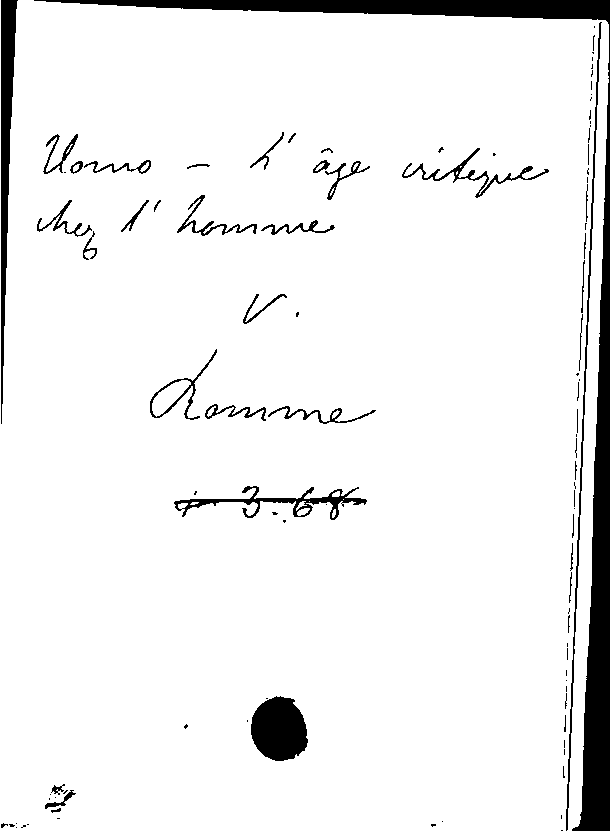 Uomo - L' âge critique
chez l' homme
V.
Homme
3.68